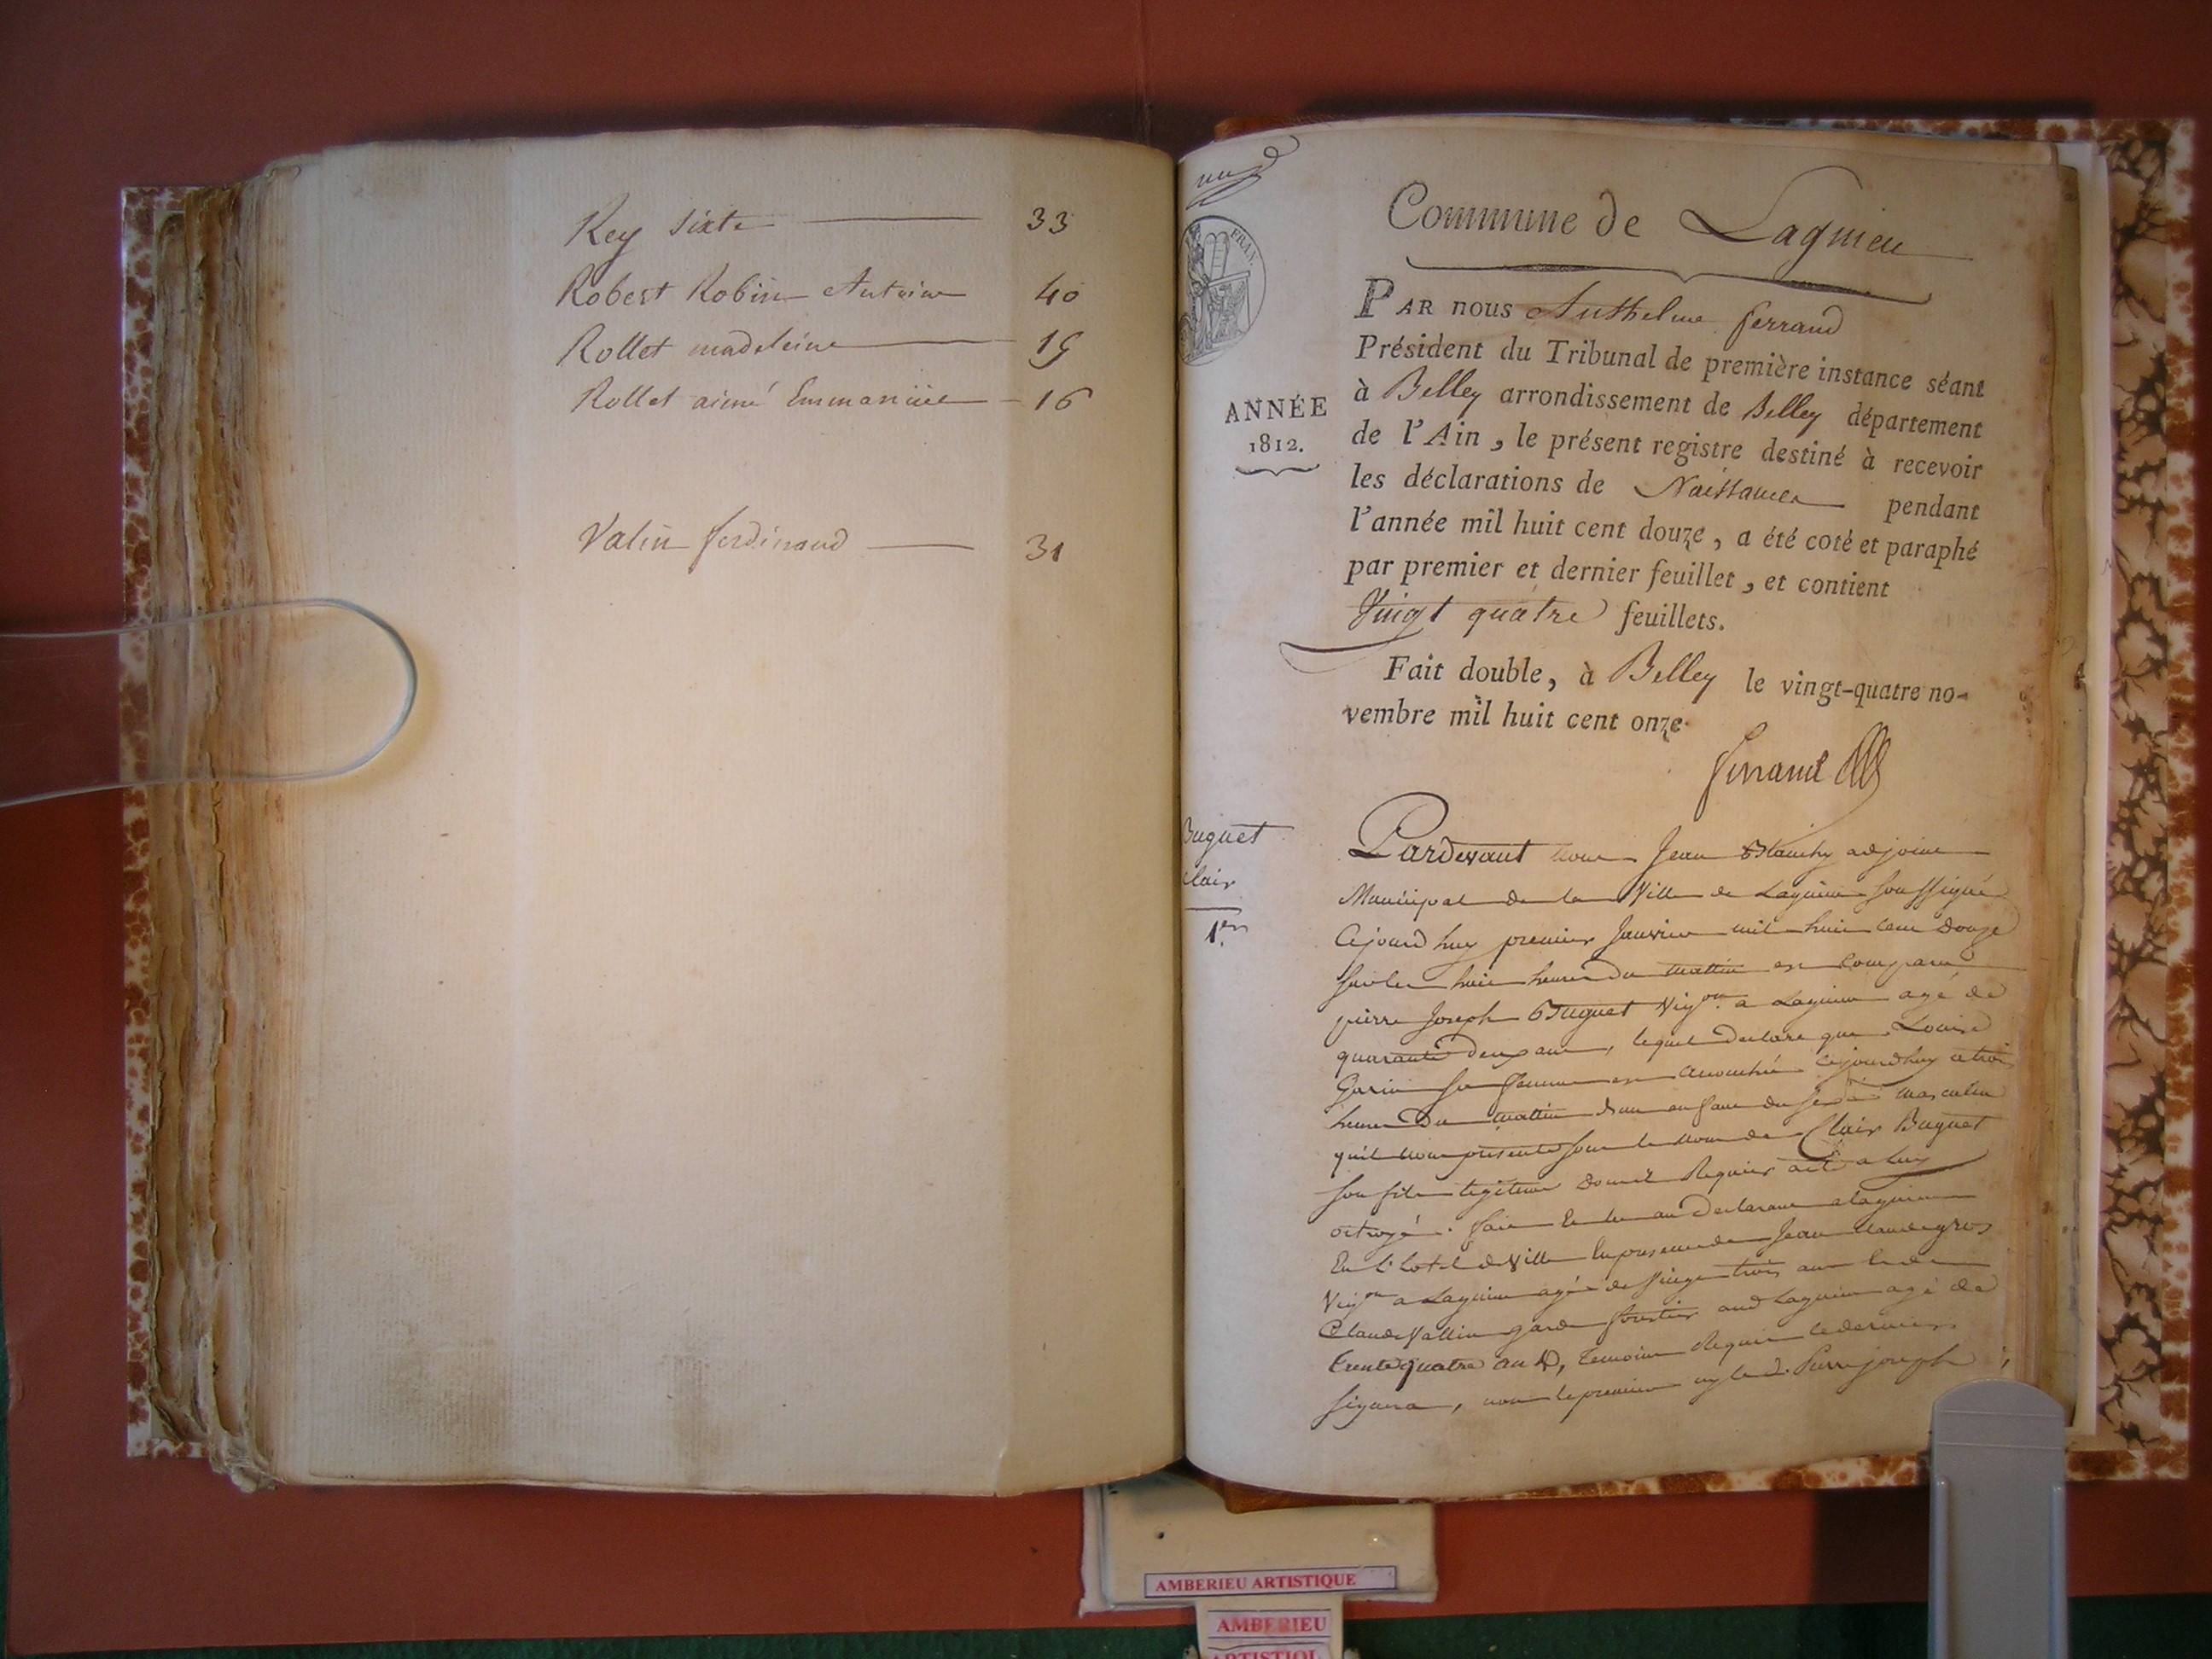 Rey Sixte 33
Robert Robin Antoine 40
Rollet madeleine 19
Rollet aimé Emmanüel 16
Valin ferdinand 31
FRAN.
Commune de Lagnieu
PAR nous Anthelme ferrand
Président du Tribunal de première instance séant
à Belley arrondissement de Belley département
ANNÉE
1812.
de l'Ain, le présent registre destiné à recevoir
les déclarations de Naissances pendant
l'année mil huit cent douze, a été coté et paraphé
par premier et dernier feuillet, et contient
Vingt quatre feuillets.
Fait double, à Belley le vingt-quatre no-
vembre mil huit cent onze
ferrand
Buguet
Clair
1er
Pardevant nous Jean adjoint
Municipal de la Ville de Lagnieu soussigné
Cejourd'huy premier Janvier mil huit cent Douze
sur les huit heures du mattin est comparu
pierre Joseph Buguet Vigon a Lagnieu agé de
quarante deux ans, lequel declare que Louise
Garin sa femme est accouchée cejourdhuy a trois
heures Du mattin d'un enfant du sexe masculin
qu'il nous presente sous le nom de Clair Buguet
son fils legitime dont il Requier acte a luy
octroyé. fait et lu au Declarant a lagnieu
En l'hotel de Ville En presence de Jean Claude gros
Vigon a Lagnieu agé de vingt trois ans et de
Claude Vallin garde forestier aud Lagnieu agé de
trente quatre ans, temoins Requis le dernier
signera, non le premier ny led. Pierre joseph
AMBERIEU ARTISTIQUE
AMBERIEU
ARTISTIQ